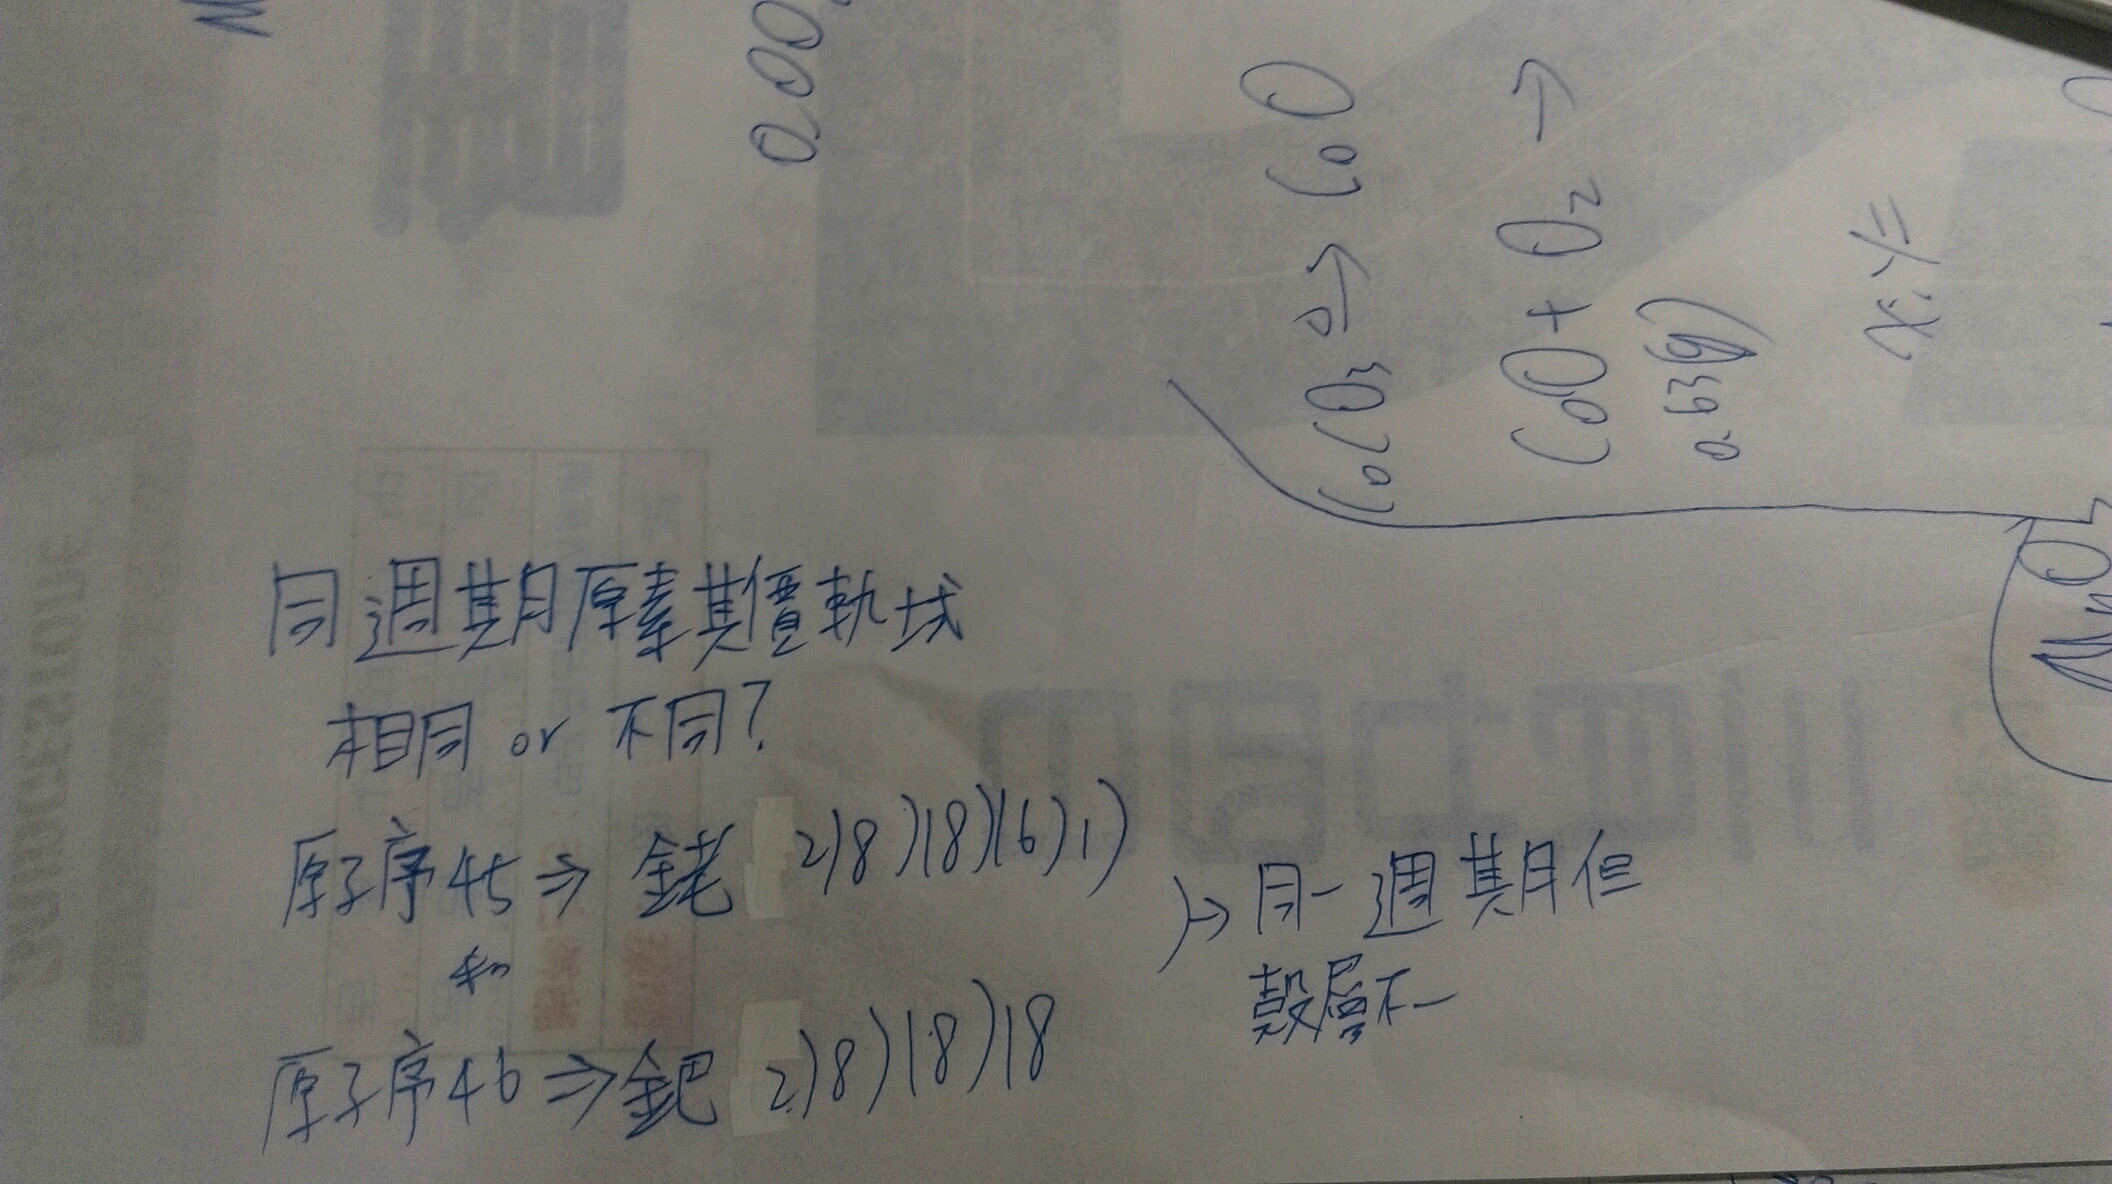 同週期原素其價軌域
相同 or 不同?
原子序45⇒ 銠 2)8)18)16)1)
和
原子序46⇒鈀 2)8)18)18
→同一週期但
殼層不一
CoCO3 ⇒ CoO
CoO + O2 →
0.63g)
x.y=
0.00
MnO